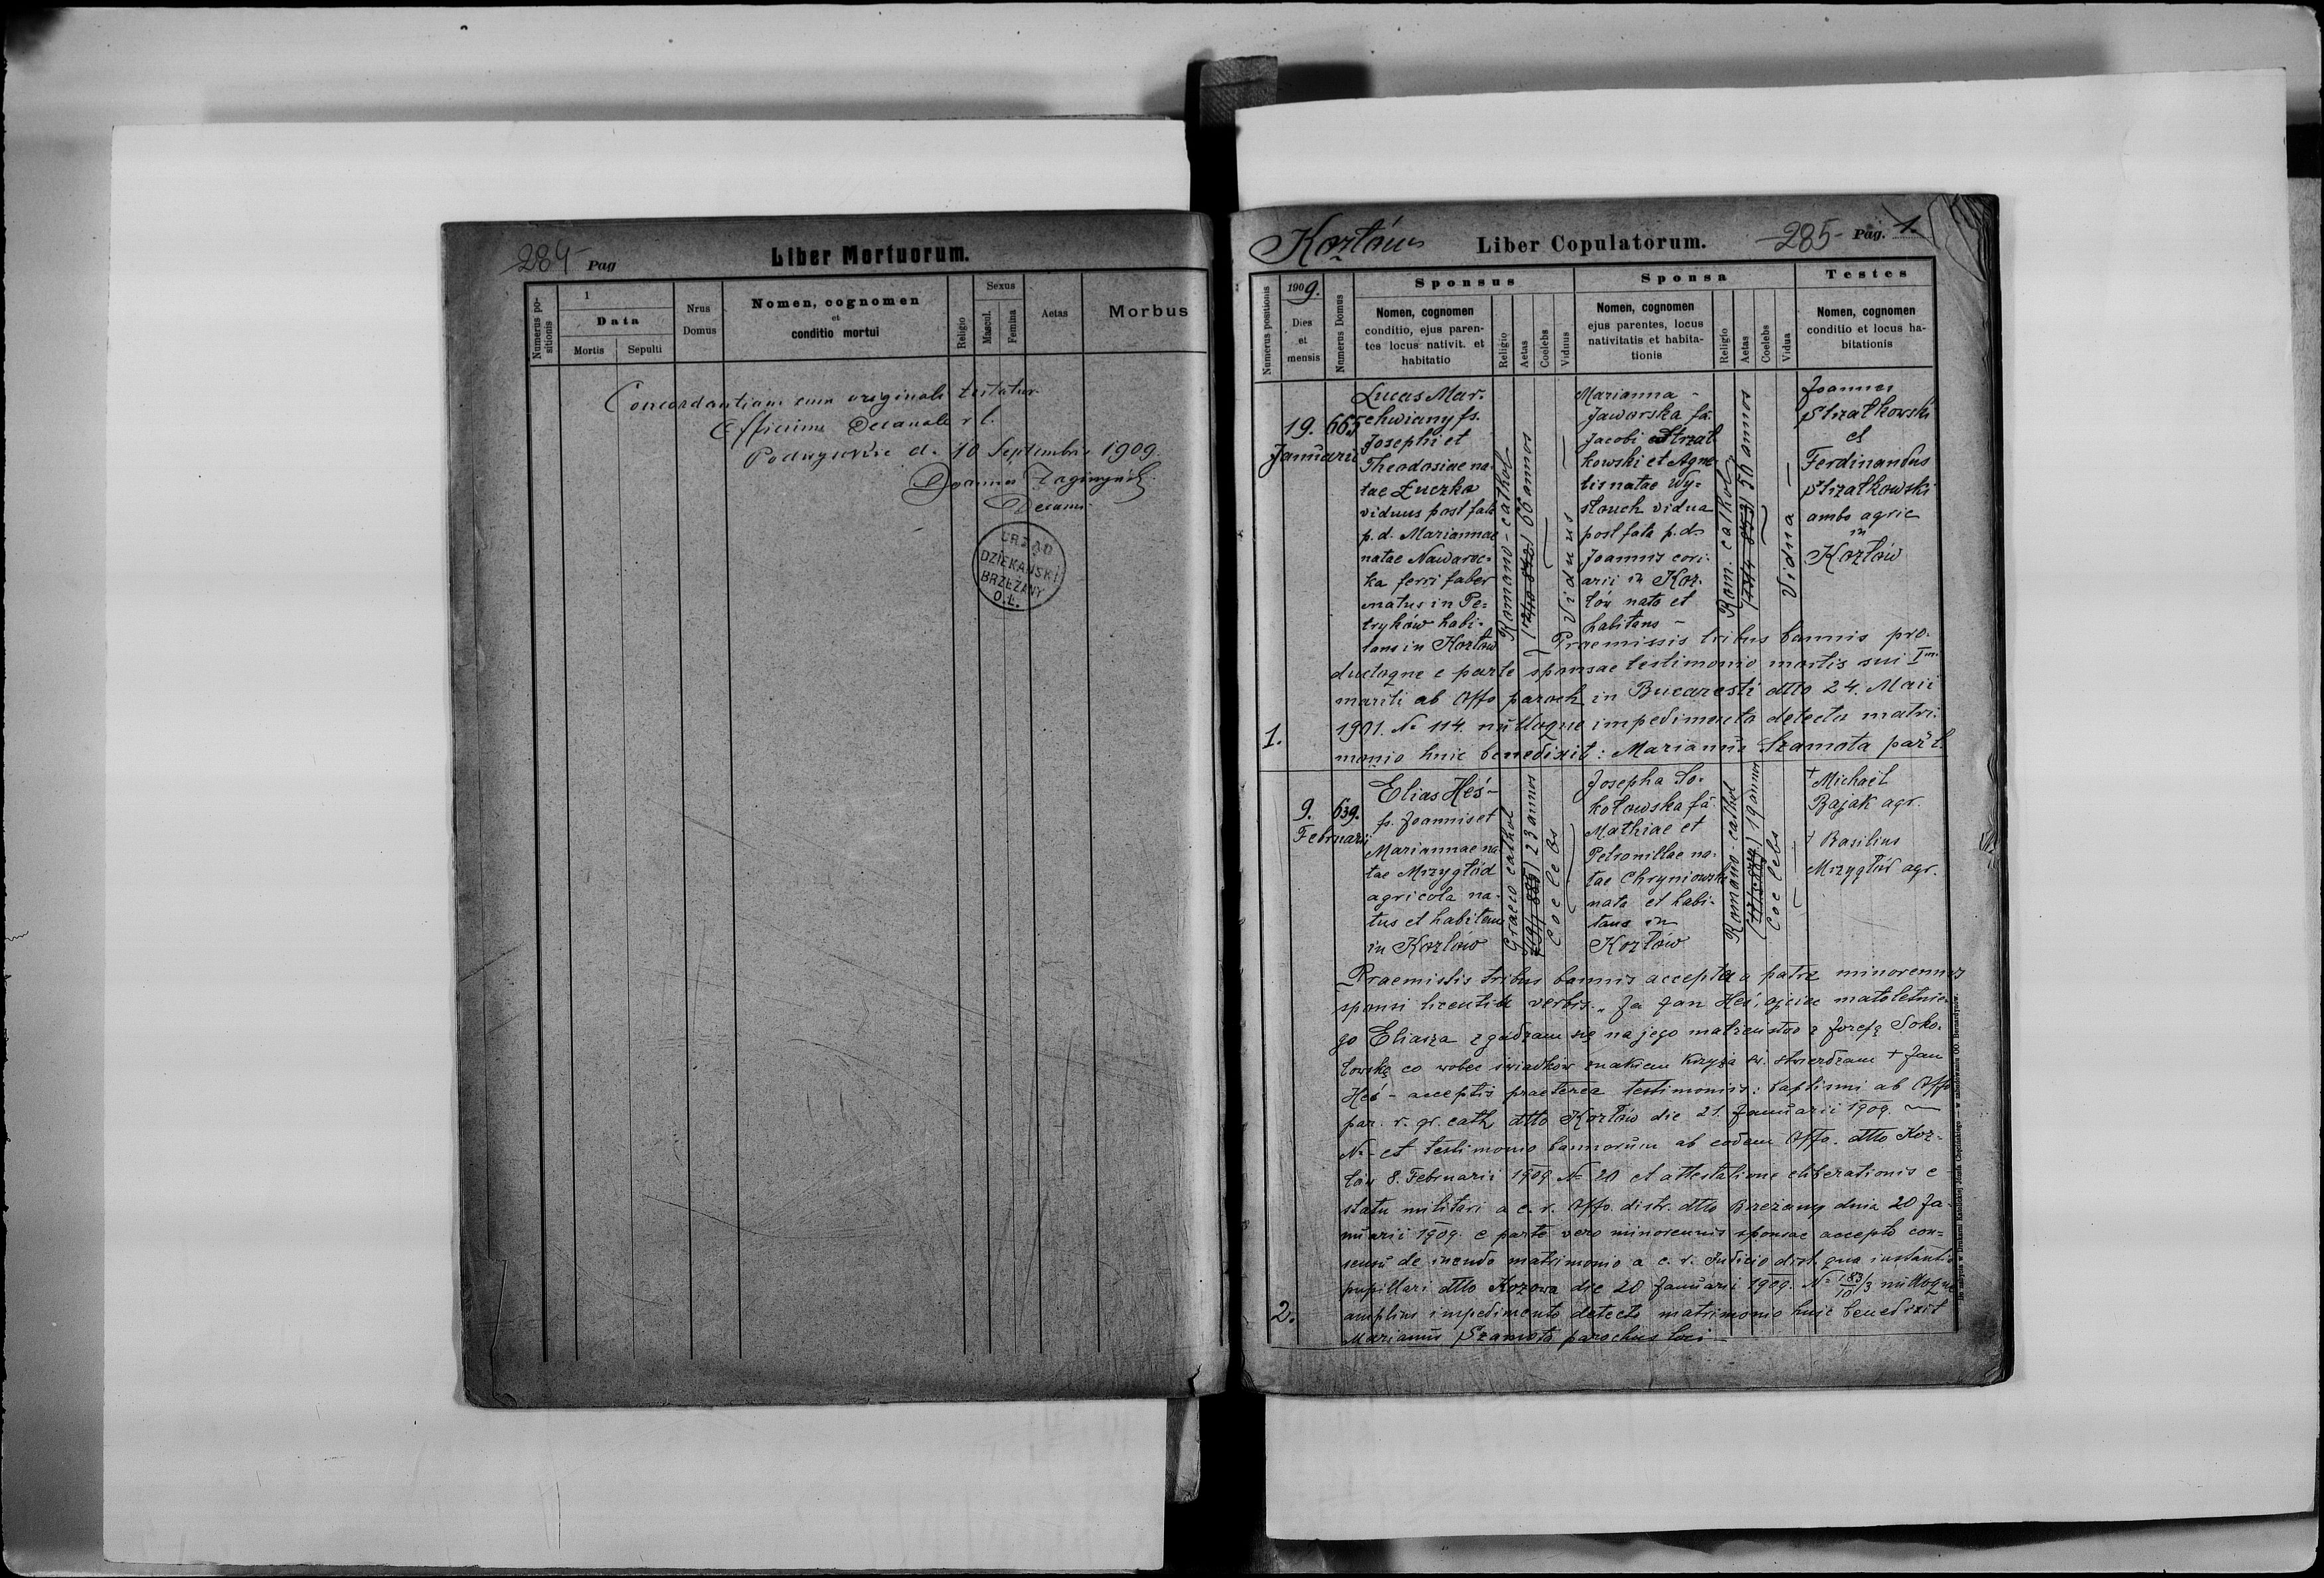 284
Pag
Liber Mortuorum.
Numerus po-
sitionis
1
Data
Mortis
Sepulti
Nrus
Domus
Nomen, cognomen
et
conditio mortui
Religio
Sexus
Mascul.
Femina
Aetas
Morbus
Concordantiam cum originali testatur
Officium Decanale r. l.
d. 10 Septembris 1909.
Joannes
Decanus
URZĄD
DZIEKAŃSKI
BRZEŻANY
O.Ł.
Kozłów
Liber Copulatorum.
-285-
Pag. 1.
Numerus positionis
1909.
Dies
et
mensis
Numerus Domus
Sponsus
Nomen, cognomen
conditio, ejus paren-
tes locus nativit. et
habitatio
Religio
Aetas
Coelebs
Viduus
Sponsa
Nomen, cognomen
ejus parentes, locus
nativitatis et habita-
tionis
Religio
Aetas
Coelebs
Vidua
Testes
Nomen, cognomen
conditio et locus ha-
bitationis
1.
19.
Januarii
665
Lucas Mar-
chwiany fs.
Josephi et
Theodosiae na-
tae Łuczka
viduus post fata
p. d. Mariannae
natae Nawaroc-
ka ferri faber
natus in Pe-
tryków habi-
tans in Kozłów
Romano-cathol
66 annos
Viduus
Marianna -
Jaworska fa.
Jacobi Strzał-
kowski et Agne-
tis natae Wy-
słouch vidua
post fata p. d.
Joannis cori-
arii in Koz-
łów nata et
habitans -
Rom. cathol.
56 annos
Vidua -
Joannes
Strzałkowski
et
Ferdinandus
Strzałkowski
ambo agric
in
Kozłów
Praemissis tribus bannis pro-
ductoque e parte sponsae testimonio mortis sui I mi
mariti ab Offo paroch in Bucaresti dtto 24. Maii
1901. № 114. nulloque impedimento detecto matri-
monio huic benedixit: Marianus Szamota par l.
2.
9.
Februarii
639.
Elias Heś -
fs. Joannis et
Mariannae na-
tae Mrzygłód
agricola na-
tus et habitans
in Kozłów
Graeco cathol
23 annos
Coelebs
Josepha So-
kołowska fa.
Mathiae et
Petronillae na-
tae Chryniowska
nata et habi-
tans in
Kozłów
Romano-cathol
19 annos
Coelebs
+ Michael
Bajak agr.
+ Basilius
Mrzygłód agr.
Praemissis tribus bannis accepta a patre minorennis
sponsi licentia verbis: „Ja Jan Heś, ojciec małoletnie-
go Eliasza zgadzam się na jego małżeństwo z Józefą Soko-
łowską co wobec świadków znakiem krzyża św. stwierdzam + Jan
Heś - acceptis praeterea testimoniis: baptismi ab Offo
par. r. gr. cath dtto Kozłów die 21. Januarii 1909. -
№ - et testimonio bannorum ab eodem Offo. dtto Koz-
łów 8. Februarii 1909 № 20 et attestatione eliberationis e
statu militari a c. r. Offo. distr. dtto Brzeżany dnia 20 Ja-
nuarii 1909. e parte vero minorennis sponsae accepto con-
sensu de ineundo matrimonio a c. r. Judicio distr. qua instantia
pupillari dtto Kozowa die 20 Januarii 1909. № 183/10/3 nulloque
amplius impedimento detecto matrimonio huic benedixit
Marianus Szamota parochus loci -